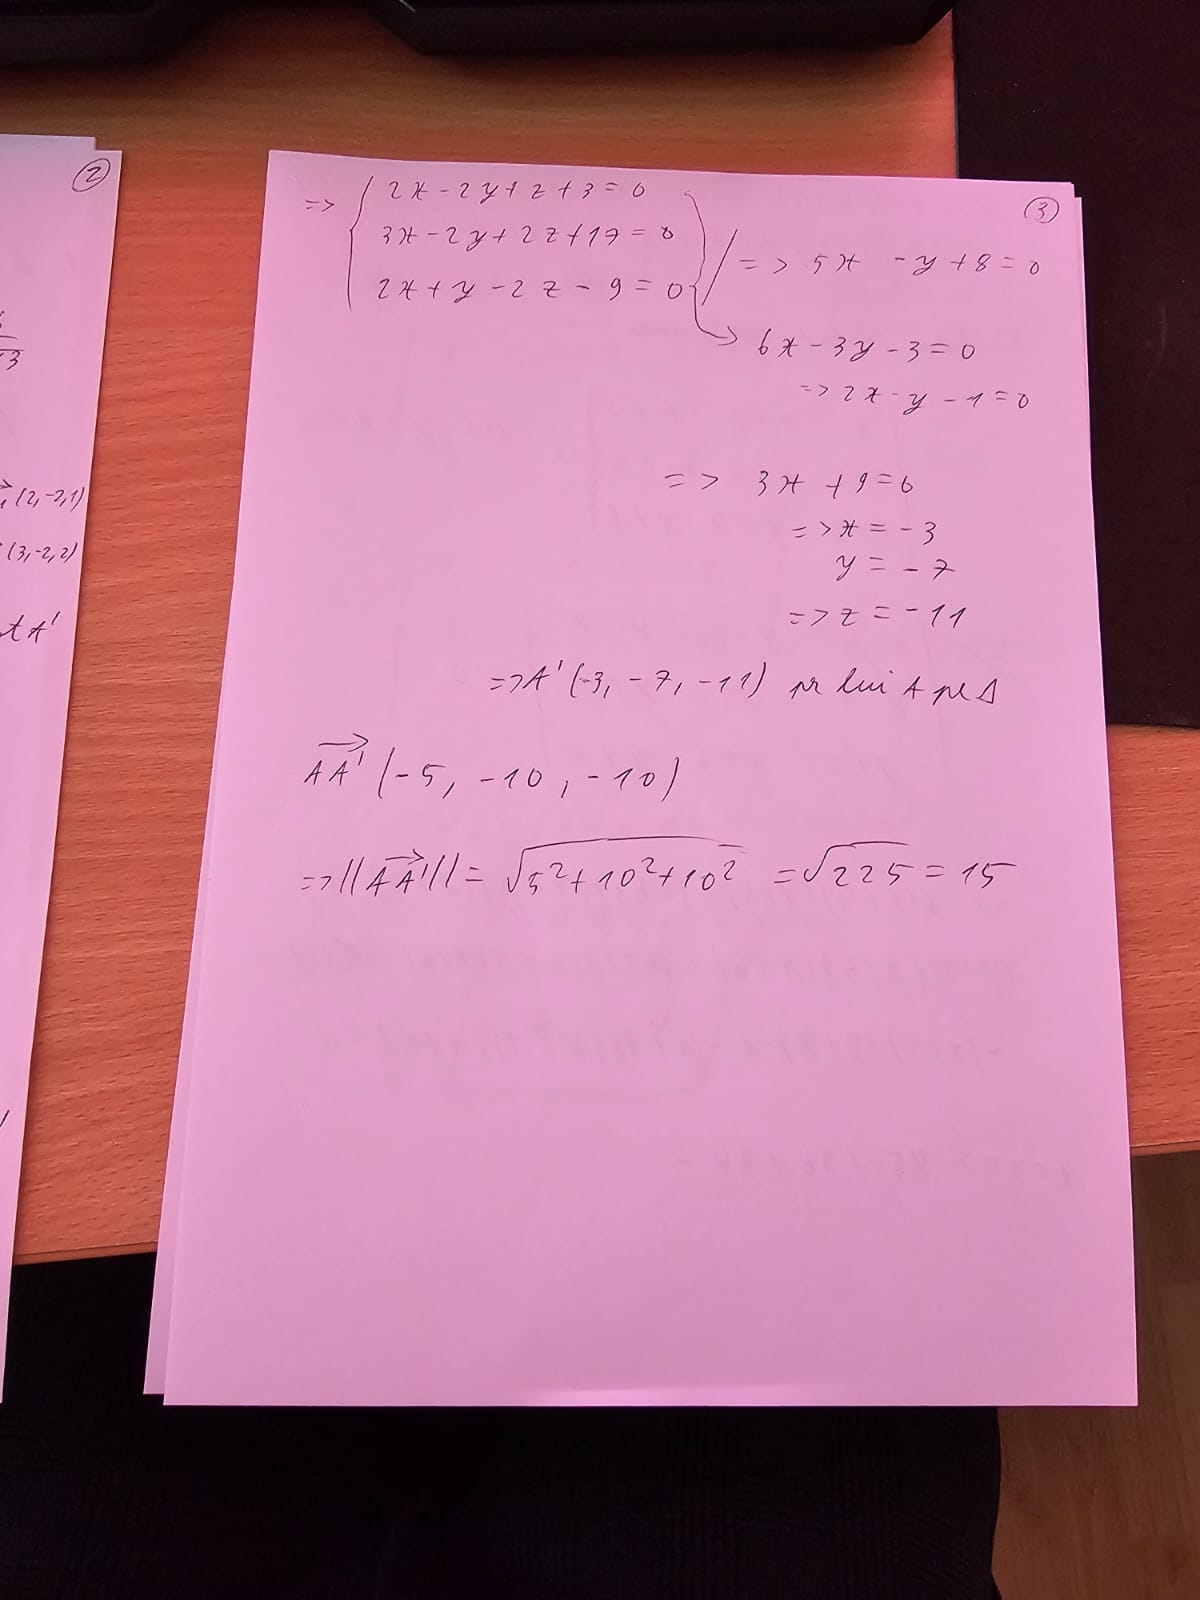 ②
3
(2,-2,1)
(3,-2,2)
A'
③
=> { 2x - 2y + z + 3 = 0
3x - 2y + 2z + 17 = 0
2x + y - 2z - 9 = 0
=> 5x - y + 8 = 0
6x - 3y - 3 = 0
=> 2x - y - 1 = 0
=> 3x + 9 = 0
=> x = -3
y = -7
=> z = -11
=> A' (-3, -7, -11) pr lui A pe Δ
AA' (-5, -10, -10)
=> ||AA'|| = √5²+10²+10² = √225 = 15